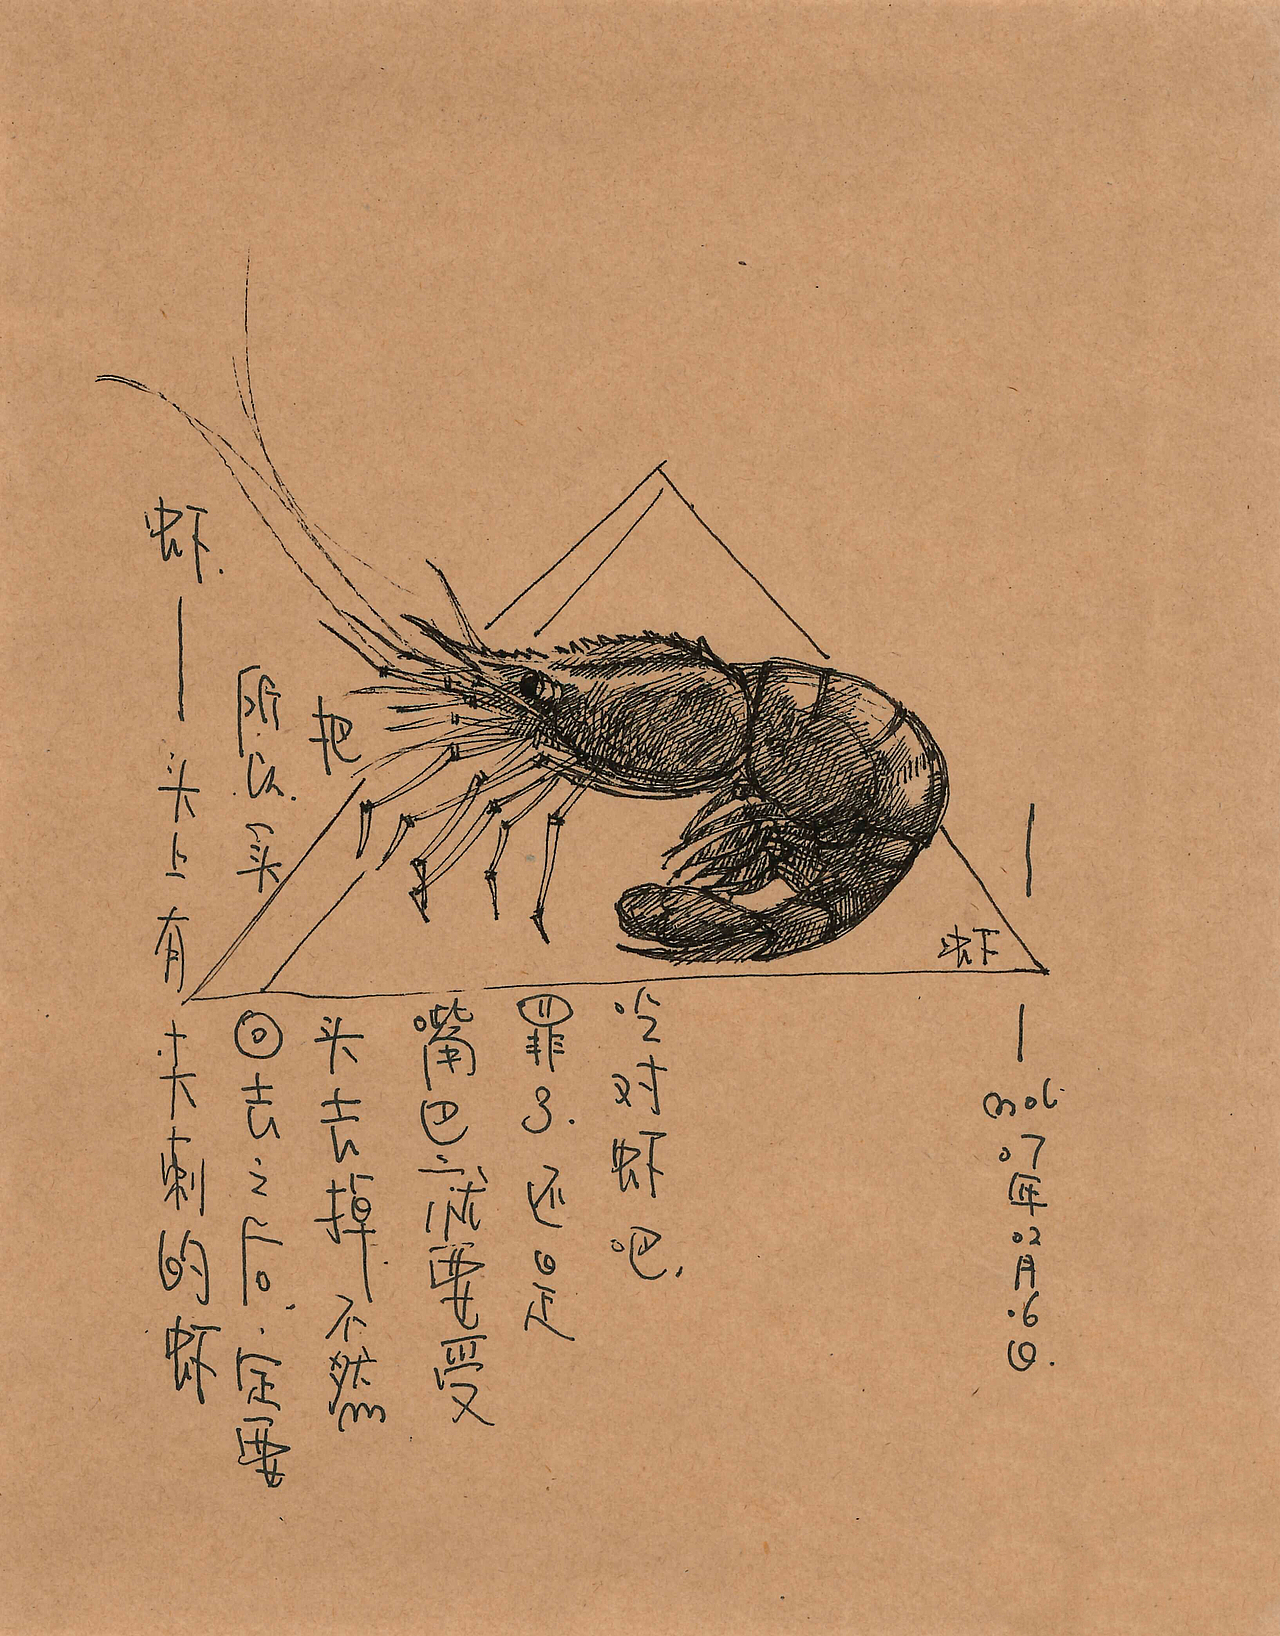 虾.—头上有尖刺的虾
所以.买回去之后.一定要
把头去掉.不然
嘴巴就要受
罪了.还是
吃对虾吧.
虾
07年02月06日.